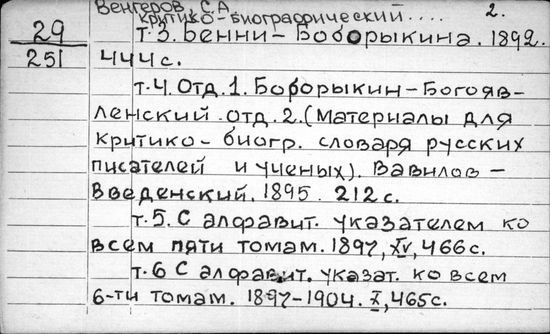 Венгеров, С.А.
критико-биографический.... 2.
29 т.3. Бенни-Боборыкина. 1892.
251 444 с.
т.4. Отд. 1. Боборыкин-Богояв-
ленский. отд. 2. (Материалы для
критико-биогр. словаря русских
писателей и ученых). Вавилов-
Введенский. 1895. 212 с.
т.5. С алфавит. указателем ко
всем пяти томам. 1897, XV, 466 с.
т.6 С алфавит. указат. ко всем
6-ти томам. 1897-1904. X, 465 с.